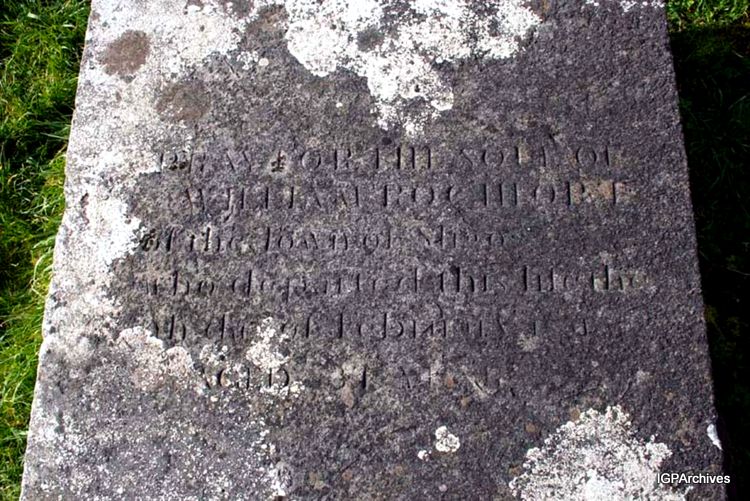 PRAY FOR THE SOUL OF
WILLIAM ROCHFORT
of the Town of Sligo
who departed this life the
of February
AGED
IGPArchives